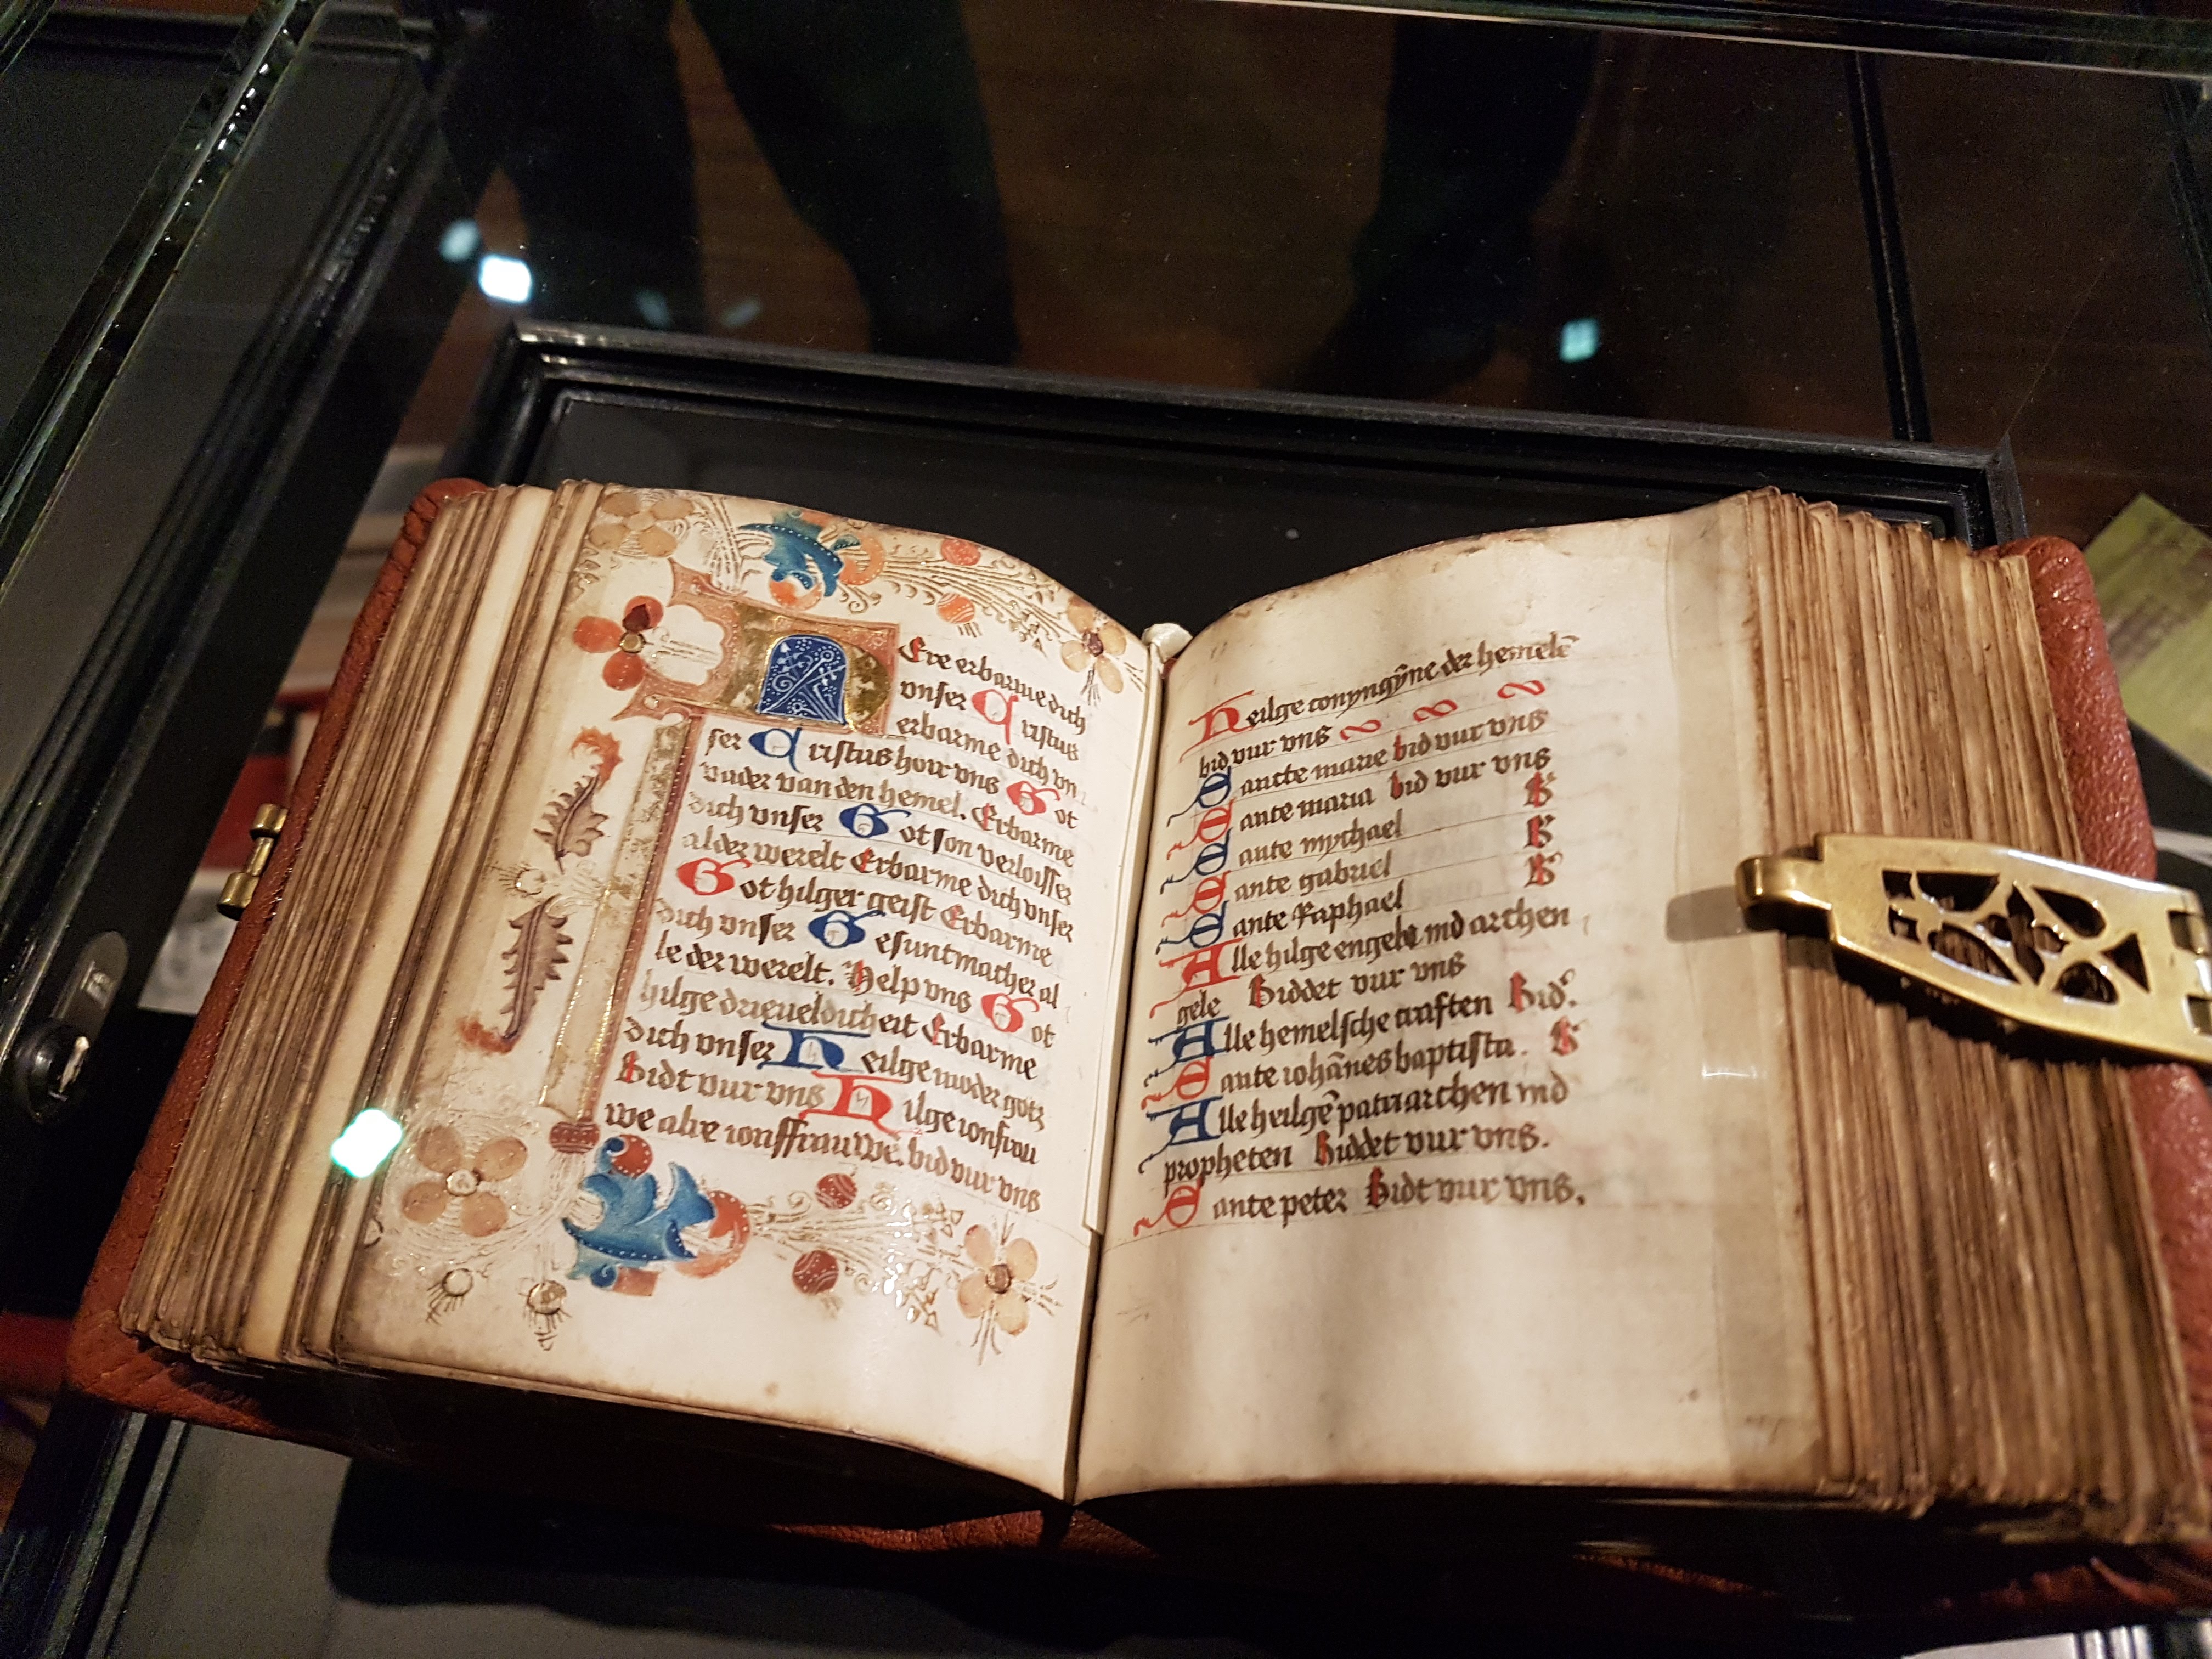 Ere erbarme dich
vnser Cristus
erbarme dich vn
ser Cristus hoir vns Got
vader van den hemel. Erbarme
dich vnser Got son verloisser
alder werelt Erbarme dich vnser
Got hilger geist Erbarme
dich vnser Gesuntmacher al
le der werelt. Help vns Got
hilge drieueldicheit Erbarme
dich vnser Heilge moder gotz
Bidt vur vns Hilge ionfrou
we alre ionffrauwe. bid vur vns
Heilge conyngȳne der hemelē
bid vur vns
Sancte marie bid vur vns
Sante maria bid vur vns
Sante mychael B
Sante gabriel B
Sante Raphael B
Alle hilge engele ind archen
gele Biddet vur vns
Alle hemelsche craften Bid.
Sante iohānes baptista. B
Alle heilgē patriarchen ind
propheten Biddet vur vns.
Sante peter Bidt vur vns.